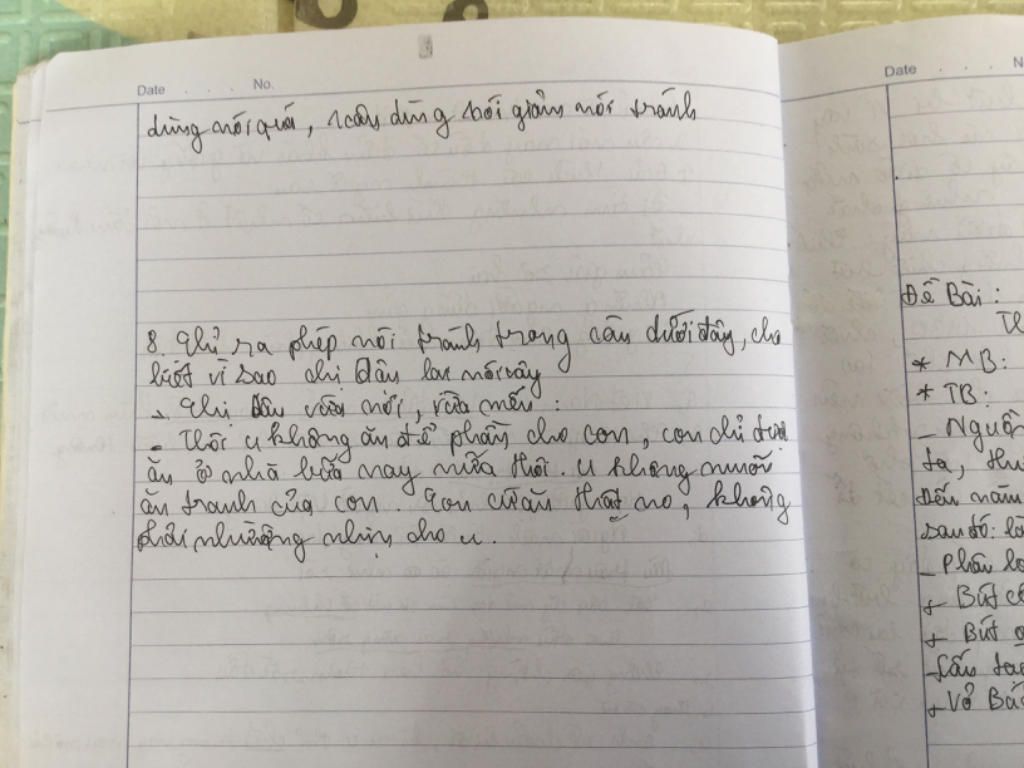 Date . . . . No.
dùng nói quá, nên dùng nói giảm nói tránh
8. Chỉ ra phép nói tránh trong câu dưới đây, cho
biết vì sao chị Dậu lại nói vậy
Chị Dậu vừa nói, vừa mếu :
- Thôi u không ăn để phần cho con, con chỉ được
ăn ở nhà bữa nay nữa thôi. u không muốn
ăn tranh của con. Con cứ ăn thật no, không
phải nhường nhịn cho u.
Date . . . . N
Đề Bài :
Th
* MB:
* TB:
- Nguồn
ta,
Đến năm
sau đó:
- Phân lo
+ Bút
+ Bút
- Cấu tạo
+ Vỏ